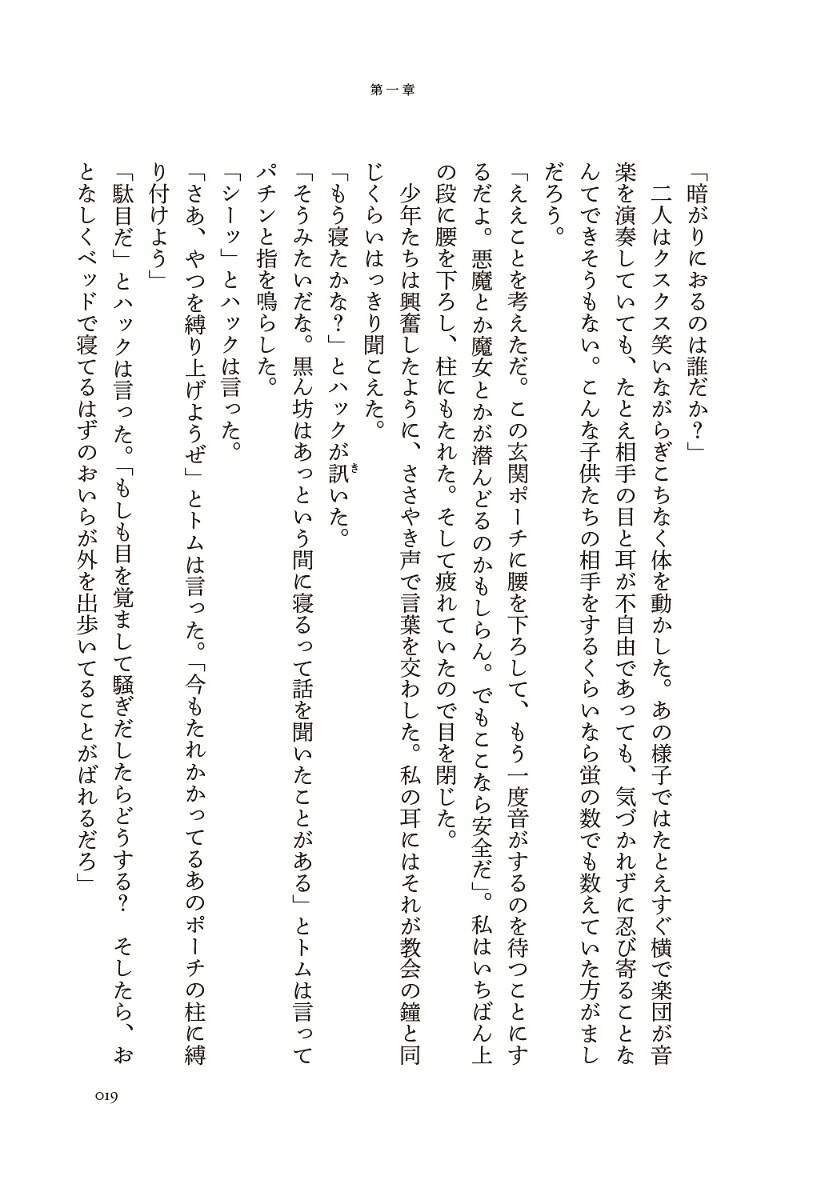 第一章
「暗がりにおるのは誰だか？」
　二人はクスクス笑いながらぎこちなく体を動かした。あの様子ではたとえすぐ横で楽団が音
楽を演奏していても、たとえ相手の目と耳が不自由であっても、気づかれずに忍び寄ることな
んてできそうもない。こんな子供たちの相手をするくらいなら蛍の数でも数えていた方がまし
だろう。
「ええことを考えただ。この玄関ポーチに腰を下ろして、もう一度音がするのを待つことにす
るだよ。悪魔とか魔女とかが潜んどるのかもしらん。でもここなら安全だ」。私はいちばん上
の段に腰を下ろし、柱にもたれた。そして疲れていたので目を閉じた。
　少年たちは興奮したように、ささやき声で言葉を交わした。私の耳にはそれが教会の鐘と同
じくらいはっきり聞こえた。
「もう寝たかな？」とハックが訊いた。
「そうみたいだな。黒ん坊はあっという間に寝るって話を聞いたことがある」とトムは言って
パチンと指を鳴らした。
「シーッ」とハックは言った。
「さあ、やつを縛り上げようぜ」とトムは言った。「今もたれかかってるあのポーチの柱に縛
り付けよう」
「駄目だ」とハックは言った。「もしも目を覚まして騒ぎだしたらどうする？　そしたら、お
となしくベッドで寝てるはずのおいらが外を出歩いてることがばれるだろ」
019